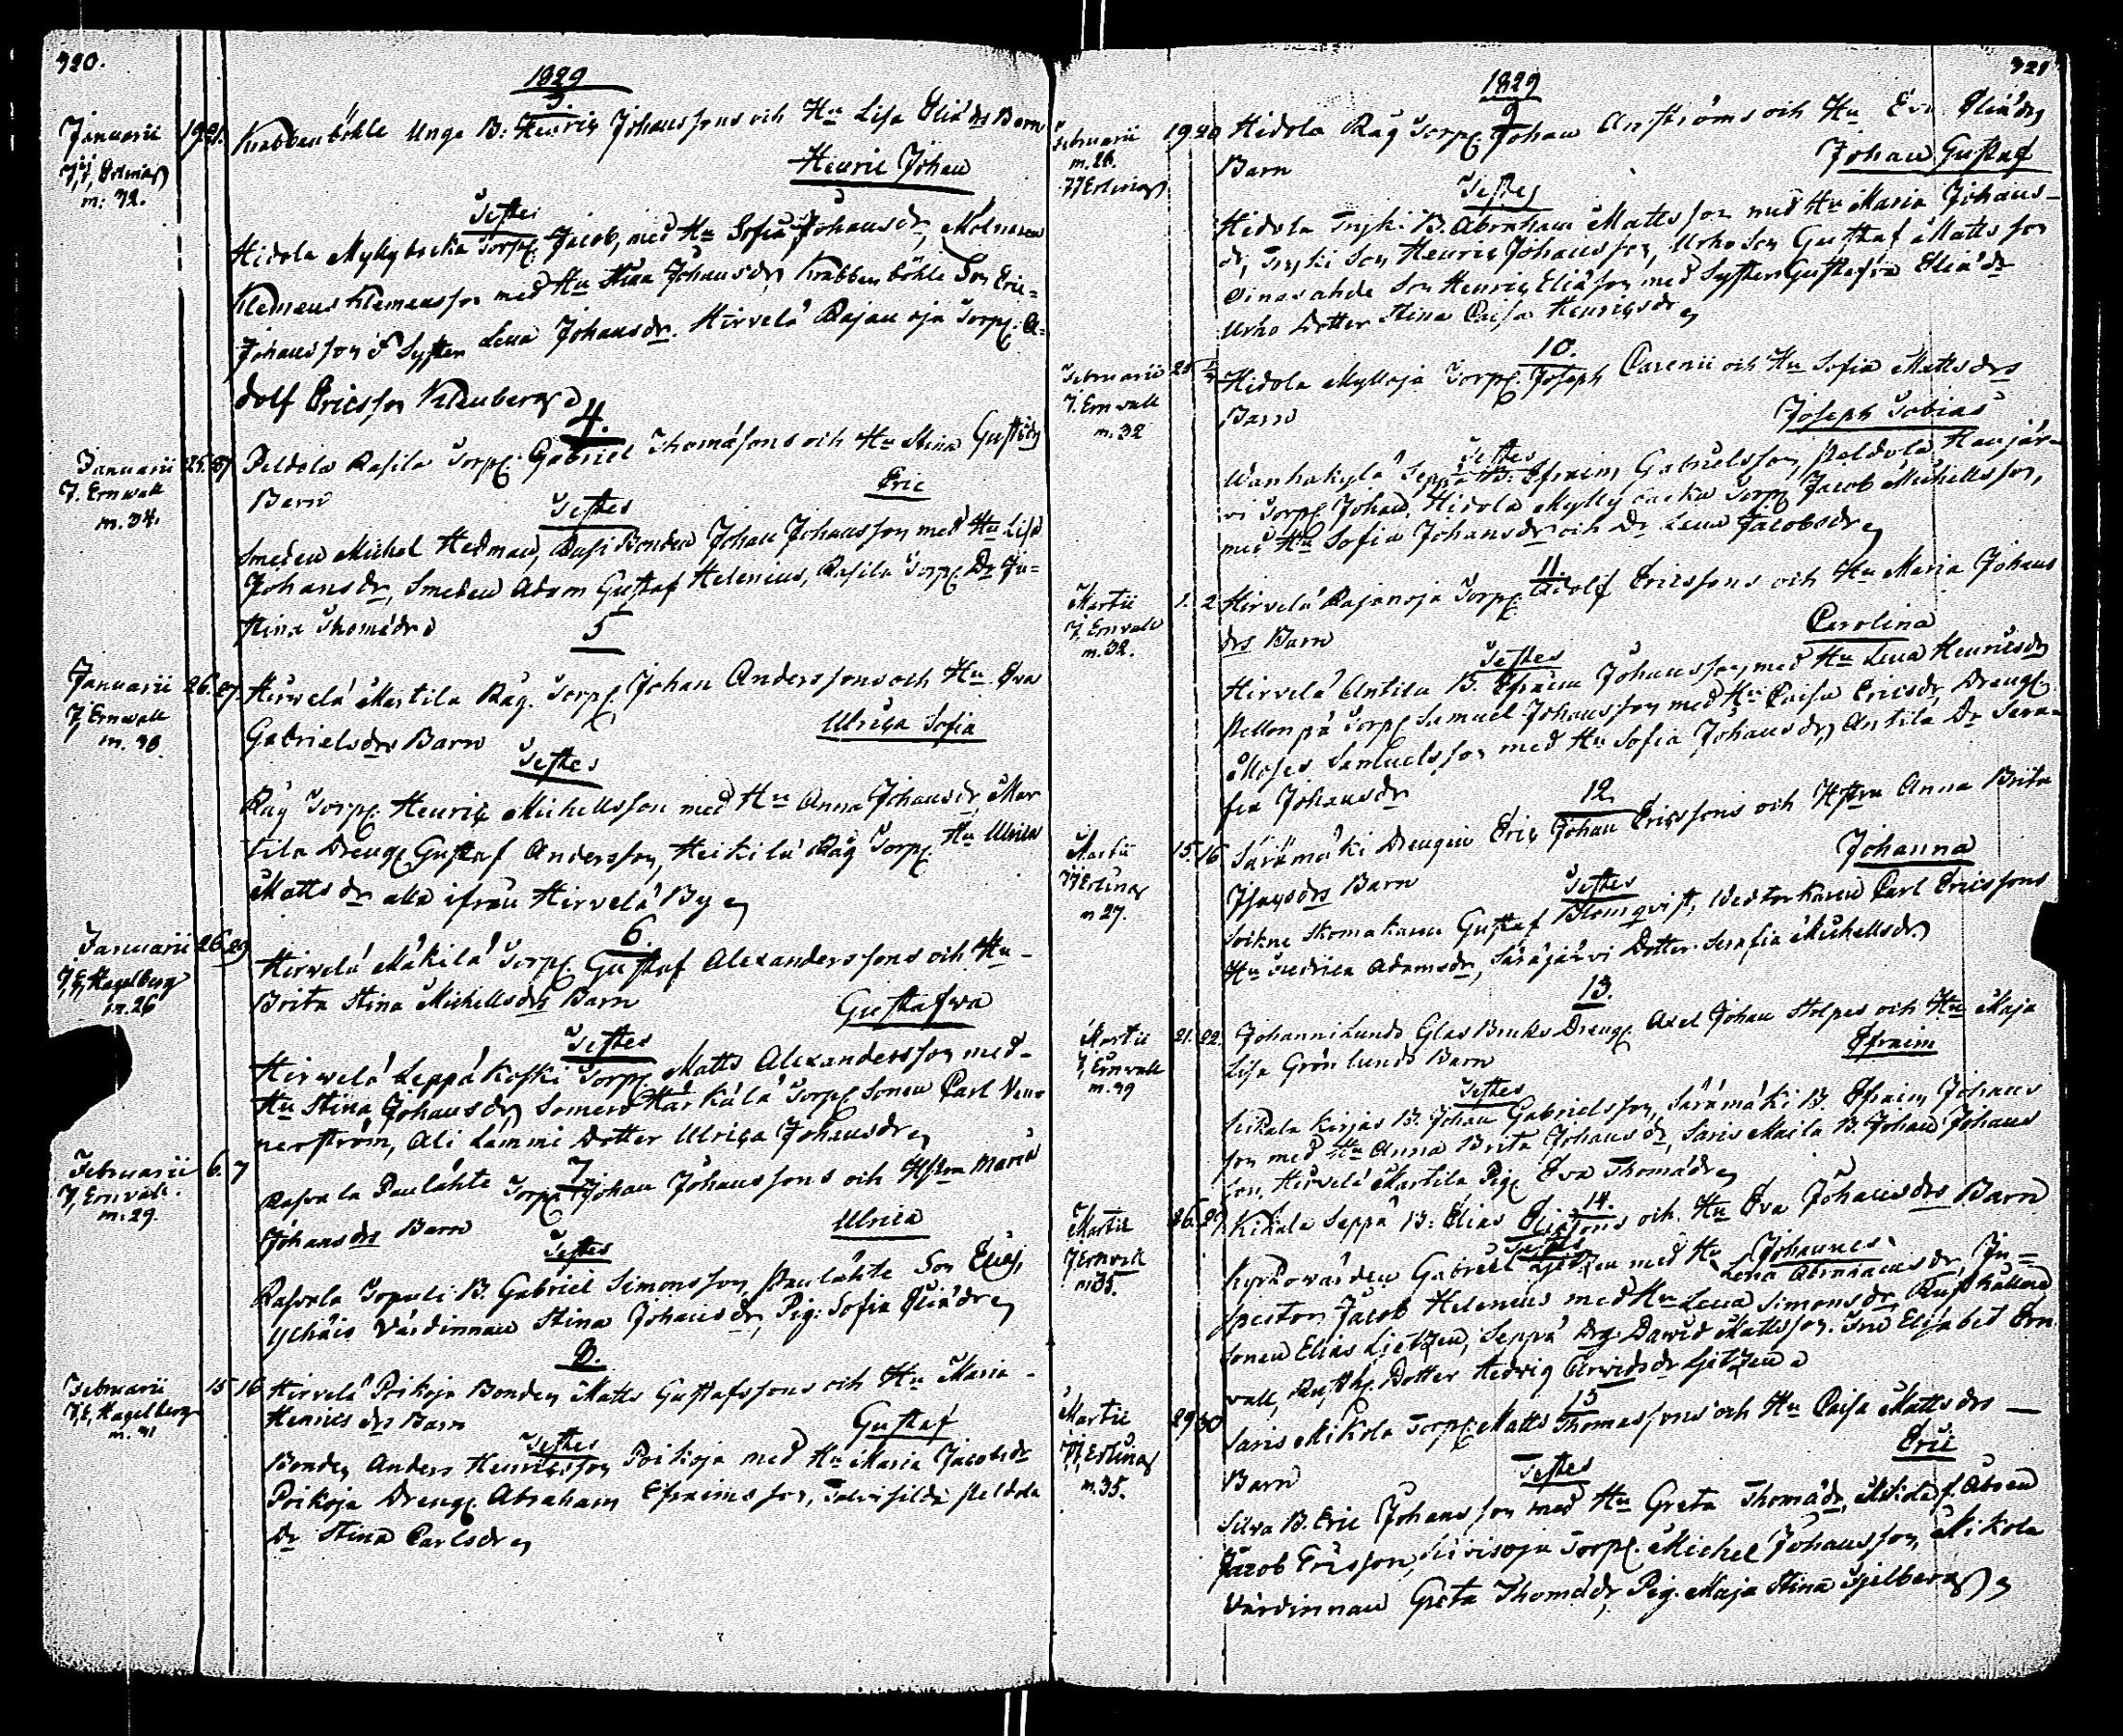 320.
1829
3.
Januarii 19. 21. Knabbenböhle Unga B: Henric Johanssons och Hu Lisa Eliædrs Barn
J,J, Erling
m: 32.
Henric Johan
Testes
Hidola Myllybacka Torp. Jacob, med Hu Sofia Johansdr,
Klemens Klemensson med Hu Stina Johansdr, Knabbenböhle Son Eric
Johansson & Syster Lena Johansdr. Hirvelä Rajanoja Torp: A=
dolf Ericsson
4.
Januarii 25. 27 Peldola Rasila Torp: Gabriel Thomæsons och Hu Stina Gustfsdrs
J. Ernvall
m. 34.
Barn
Eric
Testes
Smeden Michel Hedman, Rasi Bonden Johan Johansson med Hu Lisa
Johansdr, Smeden Adam Gustaf Helenius, Rasila Torp. Dr Ju=
stina Thomædr
5
Januarii 26. 27. Hirvelä Martila Råg. Torp. Johan Anderssons och Hu Eva
J, Ernvall
Gabrielsdrs Barn
Ulrica Sofia
Testes
Råg Torp. Henric Michellsson med Hu Anna Johansdr, Mar
tila Dreng Gustaf Andersson, Heikilä Råg Torp. Hu Ulrica
Mattsdr alla ifrån Hirvelä By
6.
Januarii 26. 29 Hirvelä Mäkilä Torp. Gustaf Alexanderssons och Hu
J,E, Hagelberg
m. 26
Brita Stina Michellsdrs Barn
Gustafva
Testes
Hirvelä Leppäkoski Torp. Matts Alexandersson med
Hu Stina Johansdr, Somero Härkälä Torp. Sonen Carl Ven
nerström, Ali Lammi Dotter Ulrica Johansdr
7
Februarii 6. 7 Rasvala Paulähte Torp. Johan Johanssons och Hstru Maria
J, Ernvall.
m: 29.
Johansdrs Barn
Ulrica
Testes
Rasvala Topuli B. Gabriel Simonsson, Paulähte Son Elias,
Värdinnan Stina Johansdr, Pig. Sofia Eliædr
8.
Februarii 15 16 Hirvelä Poikoja Bonden Matts Gustafssons och Hu Maria
J,E, Hagelberg
m. 31
Henricsdrs Barn
Gustaf
Testes
Bonden Anders Henricsson Poikoja med Hu Maria Jacobsdr
Poikoja Dreng Abraham Efraimsson, Peldola
Dr Stina Carlsdr
321
1829
9
Februarii 19. 20 Hidola Råg Torp. Johan Anströms och Hu Eva Eliædrs
m. 26.
JJ Erling
Barn
Johan Gustaf
Testes
Hidola Tryki B. Abraham Mattsson med Hu Maria Johans-
dr, Tryki Son Henric Johansson, Urho Son Gustaf Mattsson
Son Henric Eliæson med Syster Gustafva Eliædr
Urho Dotter Stina Caisa Henricsdr
10.
Februarii Hidola Mylloja Torp. Joseph Carenii och Hu Sofia Mattsdrs
J. Ernvall
m. 32
Barn
Joseph Tobias
Testes
Wanhakylä Seppä B: Efraim Gabrielsson, Peldola Haujär-
vi Torp. Johan, Hidola Myllybacka Torp. Jacob Michellsson,
med Hu Sofia Johansdr och Dr Lena Jacobsdr
11.
Martii 1. 2 Hirvelä Rajanoja Torp. Adolf Ericssons och Hu Maria Johans
J, Ernvall
m. 32.
drs Barn
Carolina
Testes
Hirvelä Antila B. Efraim Johansson, med Hu Lena Henricsdr
Torp. Samuel Johansson med Hu Caisa Ericsdr, Dreng.
Moses Samuelsson med Hu Sofia Johansdr, Antila Dr Sera-
fia Johansdr
12.
Martii 15. 16 Särämäki Drengen Eric Johan Ericssons och Hstru Anna Brita
JJ Erling
m 27.
Barn
Johanna
Testes
Skomakaren Gustaf Blomqvist, Carl Ericssons
Hu Fredrica Adamsdr, Säräjärvi Dotter Serafia Michellsdr
13.
Martii 21. 22. Johannislunds Glas Bruks Dreng Axel Johan Stolpes och Hu Maja
J, Ernvall
Lisa Grönlunds Barn
Efraim
Testes
Kikala Kirjas B. Johan Gabrielsson, Särämäki B. Efraim Johans
son med Hu Anna Brita Johansdr, Saris Maila B. Johan Johans
son, Hirvelä Martila Pig. Eva Thomædr
14.
Martii 26. Kikala Seppä B: Elias Eliæsons och Hu Eva Johansdrs Barn
J Ernvall
m 35.
Johannes
Testes
Kyrkovärden Gabriel Ljetzen med Hu Lena Abrahamsdr, In=
spector Jacob Helenius med Hu Lena Simonsdr, Rusthållare
Sonen Elias Ljetzen, Seppä Drg David Mattsson. Elisabet Ern
vall, Rusth. Dotter Hedvig Arvidsdr Ljetzen
15
Martii 29 30 Saris Mikola Torp. Matts Thomassons och Hu Caisa Mattsdrs
J,J, Erling
m. 35.
Barn
Eric
Testes
Silva B. Eric Johansson med Hu Greta Thomædr, Mikola
Jacob Ericsson, Torp. Michel Johansson, Mikola
Värdinnan Greta Thomædr, Pig. Maja Stina